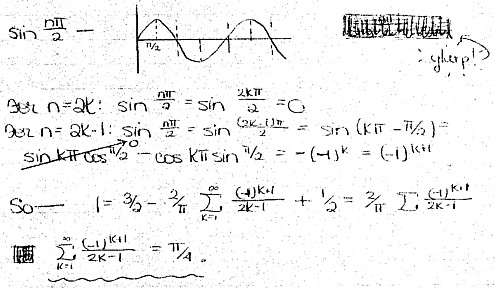 sin nπ/2 —
π/2
glerp!
For n=2K: sin nπ/2 = sin 2Kπ/2 = 0
For n=2K-1: sin nπ/2 = sin (2K-1)π/2 = sin (Kπ - π/2) =
sin Kπ cos π/2 0 - cos Kπ sin π/2 = -(-1)^K = (-1)^{K+1}
So— 1 = 3/2 - 2/π ∑_{K=1}^{∞} (-1)^{K+1}/(2K-1) + 1/2 = 2/π ∑ (-1)^{K+1}/(2K-1)
∑_{K=1}^{∞} (-1)^{K+1}/(2K-1) = π/4.